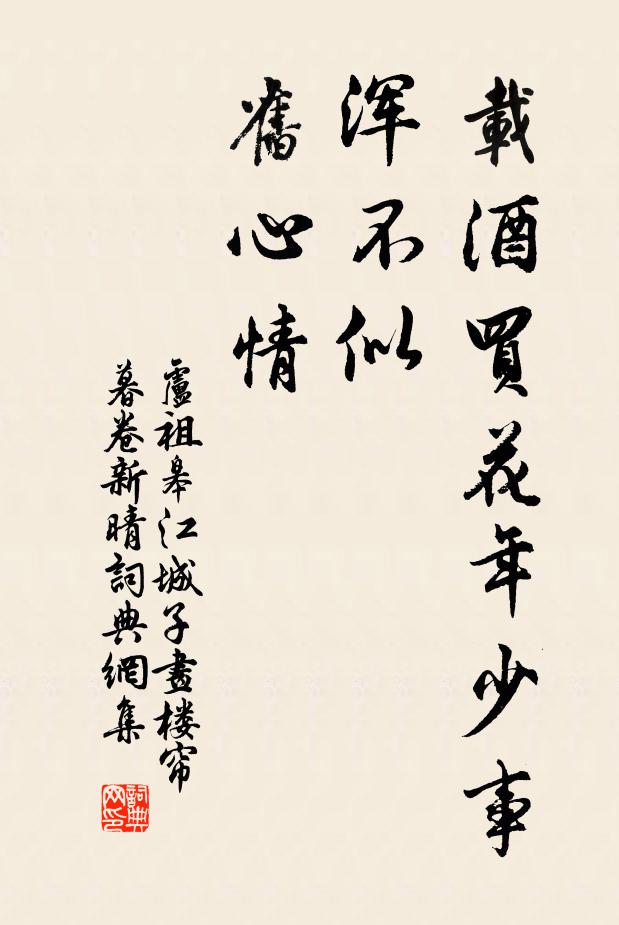 載酒買花年少事
浑不似
舊心情
盧祖皋江城子畫楼帘
暮卷新晴詞典網集
詞典
网印